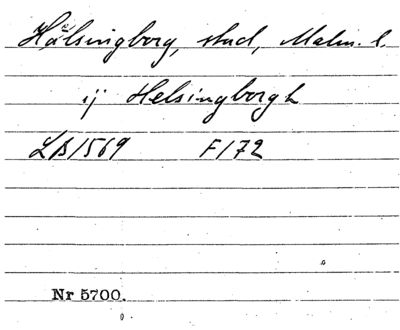 Hälsingborg, stad, Malm. l.
ij Helsingborgh
LB1569 F172
Nr 5700.